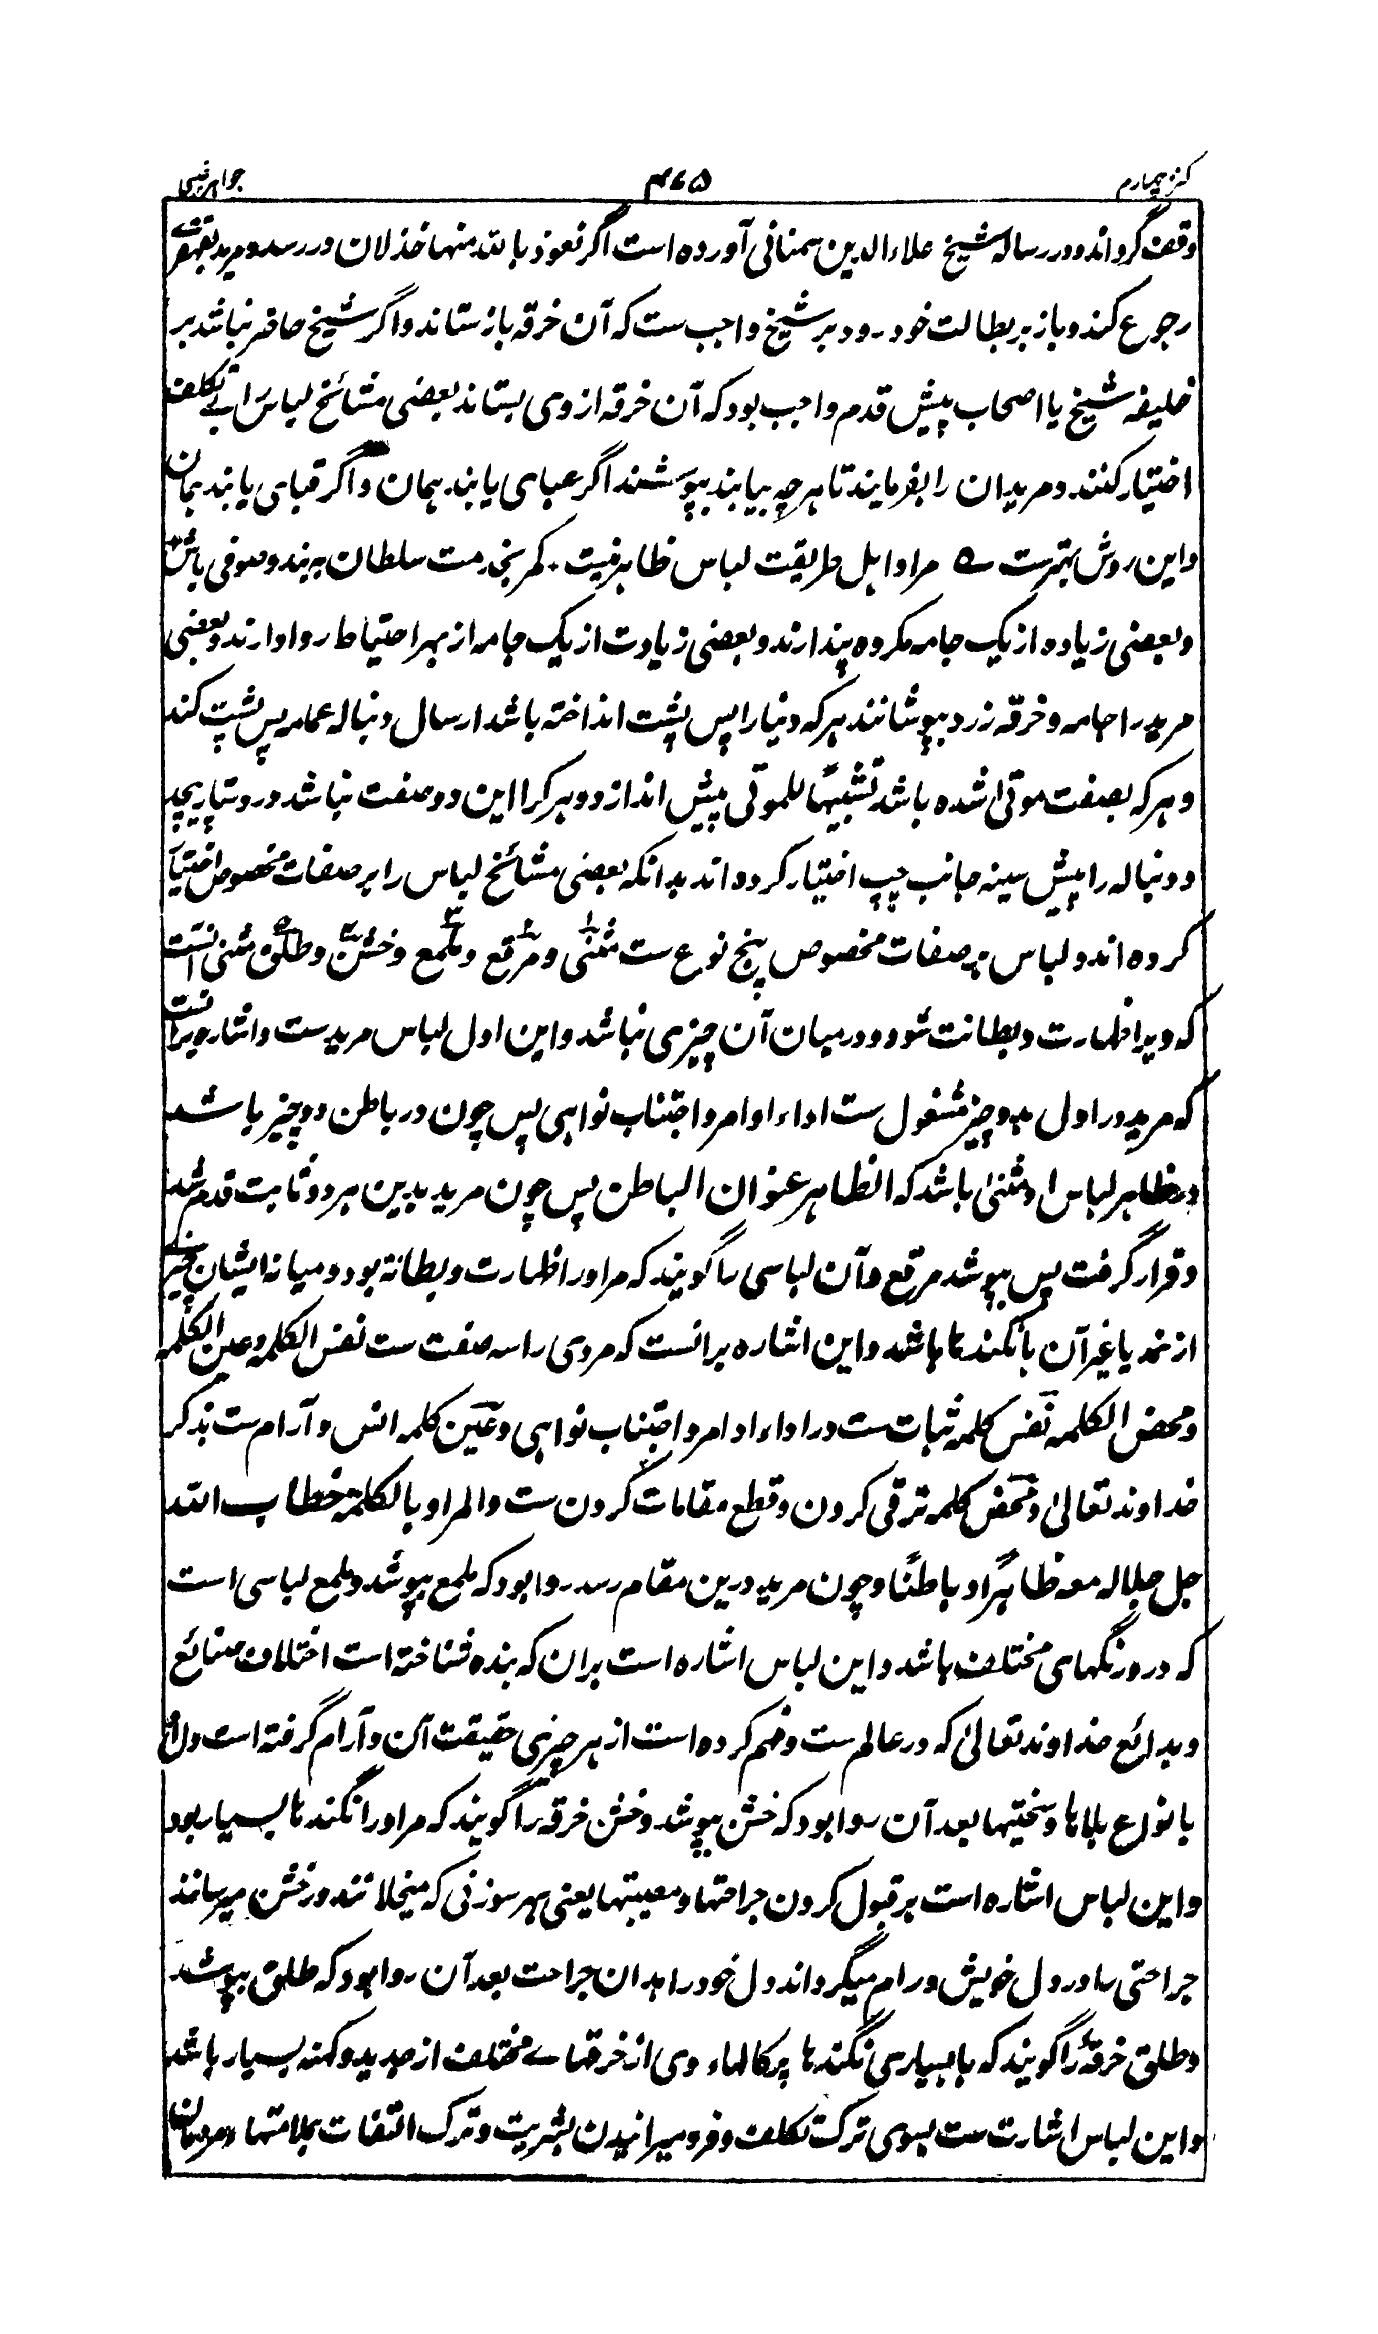 کنز چهارم
۴۶۵
جواهر غیبی
وقف گرداند و در رساله شیخ علاءالدین سمنانی آورده است اگر نعوذ بالله منها خذلان در رسد و مرید بقهقرے
رجوع کند و باز بر بطالت خود رود بر شیخ واجب ست که آن خرقه باز ستاند و اگر شیخ حاضر نباشد بر
خلیفه شیخ یا اصحاب پیش قدم واجب بود که آن خرقه از وی بستاند بعضی مشائخ لباس را بے تکلف
اختیار کنند و مریدان را بفرمایند تا هر چه بیابند بپوشند اگر عبای یابند همان و اگر قبای یابند همان
و این روش بهترست ے مراد اهل طریقت لباس ظاهر نیست . کمر بخدمت سلطان به بند و صوفی باش
و بعضی زیاده از یک جامه مکروه پندارند و بعضی زیادت از یک جامه از بهر احتیاط روا دارند و بعضی
مرید را جامه و خرقه زرد بپوشانند هر که دنیا را پس پشت انداخته باشد ارسال دنباله عمامه پس پشت کند
و هر که بصفت موتیٰ شده باشد تشبیهاً للموتی پیش اندازد و هر کرا این دو صفت نباشد در دستار پیچد
و دنباله را پیش سینه جانب چپ اختیار کرده اند بدانکه بعضی مشائخ لباس را بر صفات مخصوص اختیار
کرده اند و لباس بر صفات مخصوص پنج نوع ست مثنی و مرقع و ملمع و خشن و طلق مثنی آنست
که ویرا ظهارت و بطانت شود و در میان آن چیزی نباشد و این اول لباس مریدست و اشاره برانست
که مرید در اول بدو چیز مشغول ست اداء اوامر و اجتناب نواهی پس چون در باطن دو چیز باشد
در ظاهر لباس او مثنیٰ باشد که الظاهر عنوان الباطن پس چون مرید بدین هر دو ثابت قدم شد
و قرار گرفت پس بپوشد مرقع و آن لباسی را گویند که مر او را ظهارت و بطانه بود و میانه ایشان چیزے
از نمد یا غیر آن بانگندها باشد و این اشاره برانست که مردی را سه صفت ست نفس الکلمه و عین الکلمه
و محض الکلمه نفس کلمه ثبات ست در اداء اوامر و اجتناب نواهی و عین کلمه انس و آرام ست بذکر
خداوند تعالیٰ و محض کلمه ترقی کردن و قطع مقامات کردن ست والمراد بالکلمة خطاب الله
جل جلاله معه ظاهراً و باطناً و چون مرید درین مقام رسد روا بود که ملمع بپوشد و ملمع لباسی است
که درو رنگهای مختلف باشد و این لباس اشاره است بران که بنده شناخته است اختلاف صنائع
و بدائع خداوند تعالیٰ که در عالم ست و فهم کرده است از هر چیزی حقیقت آن و آرام گرفته است دل او
بانواع بلاها و سختیها بعد آن روا بود که خشن بپوشد و خشن خرقه را گویند که مر او را نگندها بسیار بود
و این لباس اشاره است بر قبول کردن جراحتها و مصیبتها یعنی بهر سوزنی که میخلانند در خشن میرسانند
جراحتی را در دل خویش و رام میگرداند دل خود را بدان جراحت بعد آن روا بود که طلق بپوشد
و طلق خرقهٔ را گویند که با بسیاری نگندها پرکالهاء وی از خرقهاے مختلف از جدید و کهنه بسیار باشد
و این لباس اشارت ست بسوی ترک تکلف و فرو میرانیدن بشریت و ترک التفات بملامتهاء مردمان